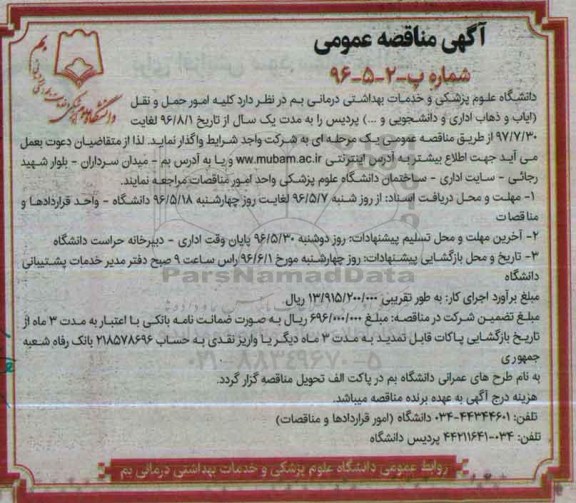 آگهی مناقصه عمومی
شماره پ-۲-۵-۹۶
دانشگاه علوم پزشکی و خدمات بهداشتی درمانی بم در نظر دارد کلیه امور حمل و نقل
(ایاب و ذهاب اداری و دانشجویی و ...) پردیس را به مدت یک سال از تاریخ ۹۶/۸/۱ لغایت
۹۷/۷/۳۰ از طریق مناقصه عمومی یک مرحله ای به شرکت واجد شرایط واگذار نماید. لذا از متقاضیان دعوت بعمل
می آید جهت اطلاع بیشتر به آدرس اینترنتی ww.mubam.ac.ir و یا به آدرس بم - میدان سرداران - بلوار شهید
رجائی - سایت اداری - ساختمان دانشگاه علوم پزشکی واحد امور مناقصات مراجعه نمایند.
۱- مهلت و محل دریافت اسناد: از روز شنبه ۹۶/۵/۷ لغایت روز چهارشنبه ۹۶/۵/۱۸ دانشگاه - واحد قراردادها و
مناقصات
۲- آخرین مهلت و محل تسلیم پیشنهادات: روز دوشنبه ۹۶/۵/۳۰ پایان وقت اداری - دبیرخانه حراست دانشگاه
۳- تاریخ و محل بازگشایی پیشنهادات: روز چهارشنبه مورخ ۹۶/۶/۱ راس ساعت ۹ صبح دفتر مدیر خدمات پشتیبانی
دانشگاه
ParsNamadData
مبلغ برآورد اجرای کار: به طور تقریبی ۱۳/۹۱۵/۲۰۰/۰۰۰ ریال
مبلغ تضمین شرکت در مناقصه: مبلغ ۶۹۶/۰۰۰/۰۰۰ ریال به صورت ضمانت نامه بانکی با اعتبار به مدت ۳ ماه از
تاریخ بازگشایی پاکات قابل تمدید به مدت ۳ ماه دیگر یا واریز نقدی به حساب ۲۱۸۵۷۸۶۹۶ بانک رفاه شعبه
جمهوری
به نام طرح های عمرانی دانشگاه بم در پاکت الف تحویل مناقصه گزار گردد.
هزینه درج آگهی به عهده برنده مناقصه میباشد.
تلفن: ۴۴۳۴۴۶۰۱-۰۳۴ دانشگاه (امور قراردادها و مناقصات)
تلفن: ۰۳۴-۴۴۲۱۱۶۴۱ پردیس دانشگاه
روابط عمومی دانشگاه علوم پزشکی و خدمات بهداشتی درمانی بم